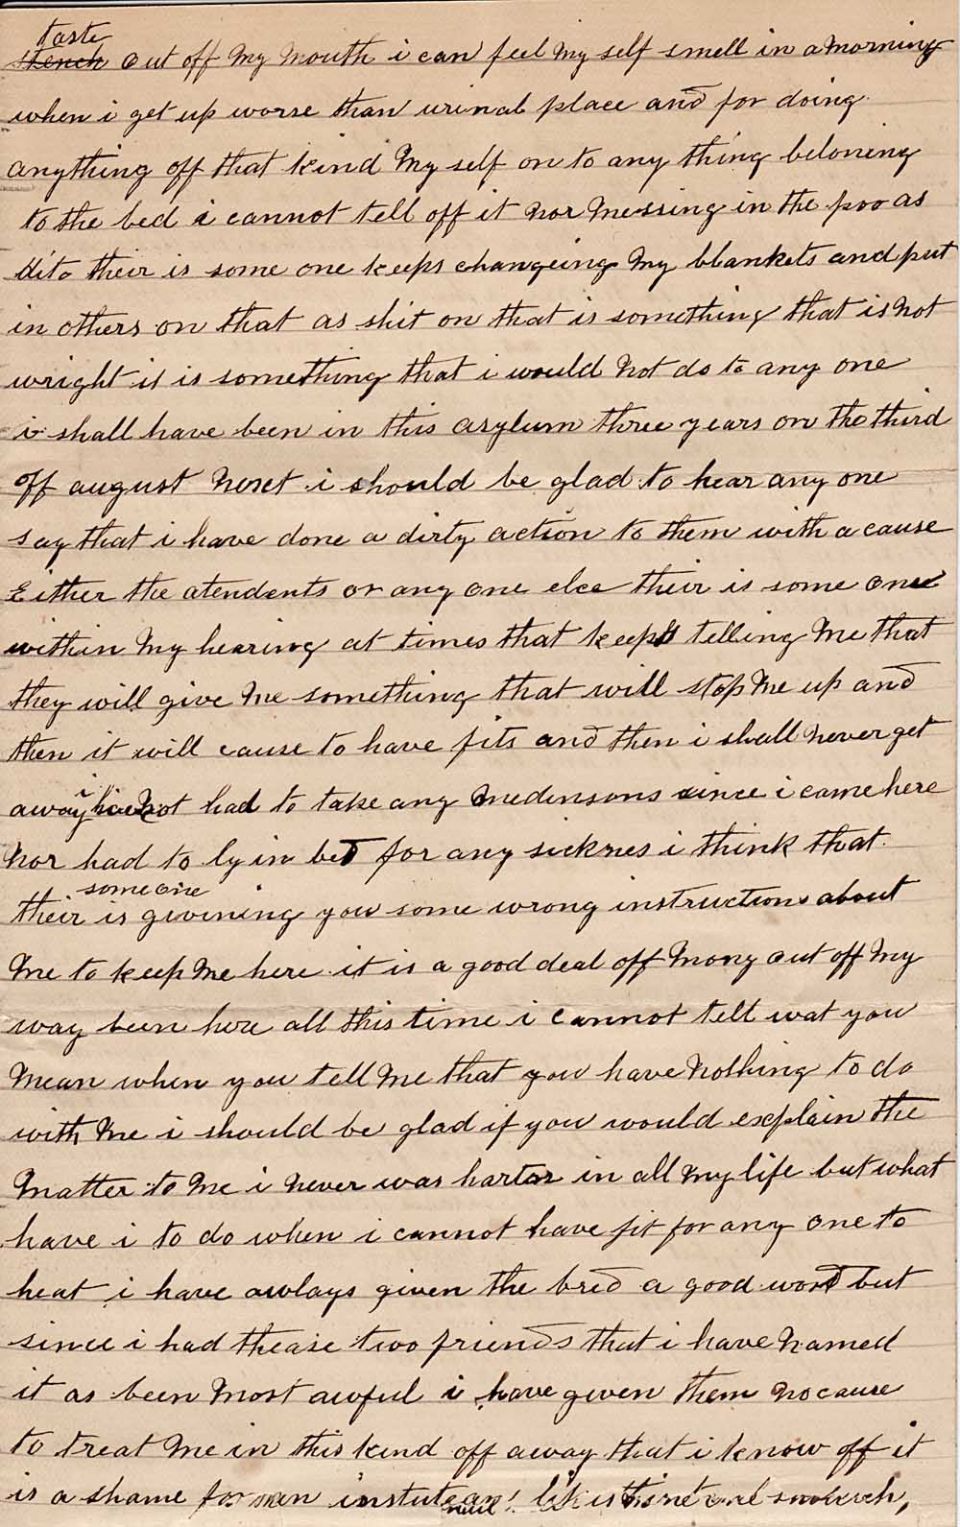 taste
stench out off my mouth i can feel my self smell in a morning
when i get up worse than urinal place and for doing
anything off that kind my self on to any thing beloning
to the bed i cannot tell off it nor messing in the poo as
dito their is some one keeps changeing my blankets and put
in others on that as shit on that is something that is not
wright it is something that i would not do to any one
i shall have been in this asylum three years on the third
off august next i should be glad to hear any one
say that i have done a dirty action to them with a cause
Either the atendents or any one else their is some one
within my hearing at times that keeps telling me that
they will give me something that will stop me up and
then it will cause to have fits and then i shall never get
away i have not had to take any medinsons since i came here
nor had to ly in bed for any sicknes i think that
someone
their is givining you some wrong instructions about
me to keep me here it is a good deal off mony out off my
way been here all this time i cannot tell wat you
mean when you tell me that you have nothing to do
with me i should be glad if you would explain the
matter to me i never was in all my life but what
have i to do when i cannot have fit for any one to
heat i have awlays given the bred a good word but
since i had thease two friends that i have named
it as been most awful i have given them no cause
to treat me in this kind off away that i know off it
is a shame for man